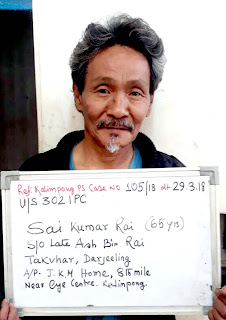 Ref: Kalimpong PS Case No 105/18 dt 29.3.18
U/S 302 IPC
Sai Kumar Rai (65 yrs)
S/o Late Ash Bir Rai
Takvhar, Darjeeling
A/P- J.K.M Home, 8½ mile
Near Eye Centre. Kalimpong.